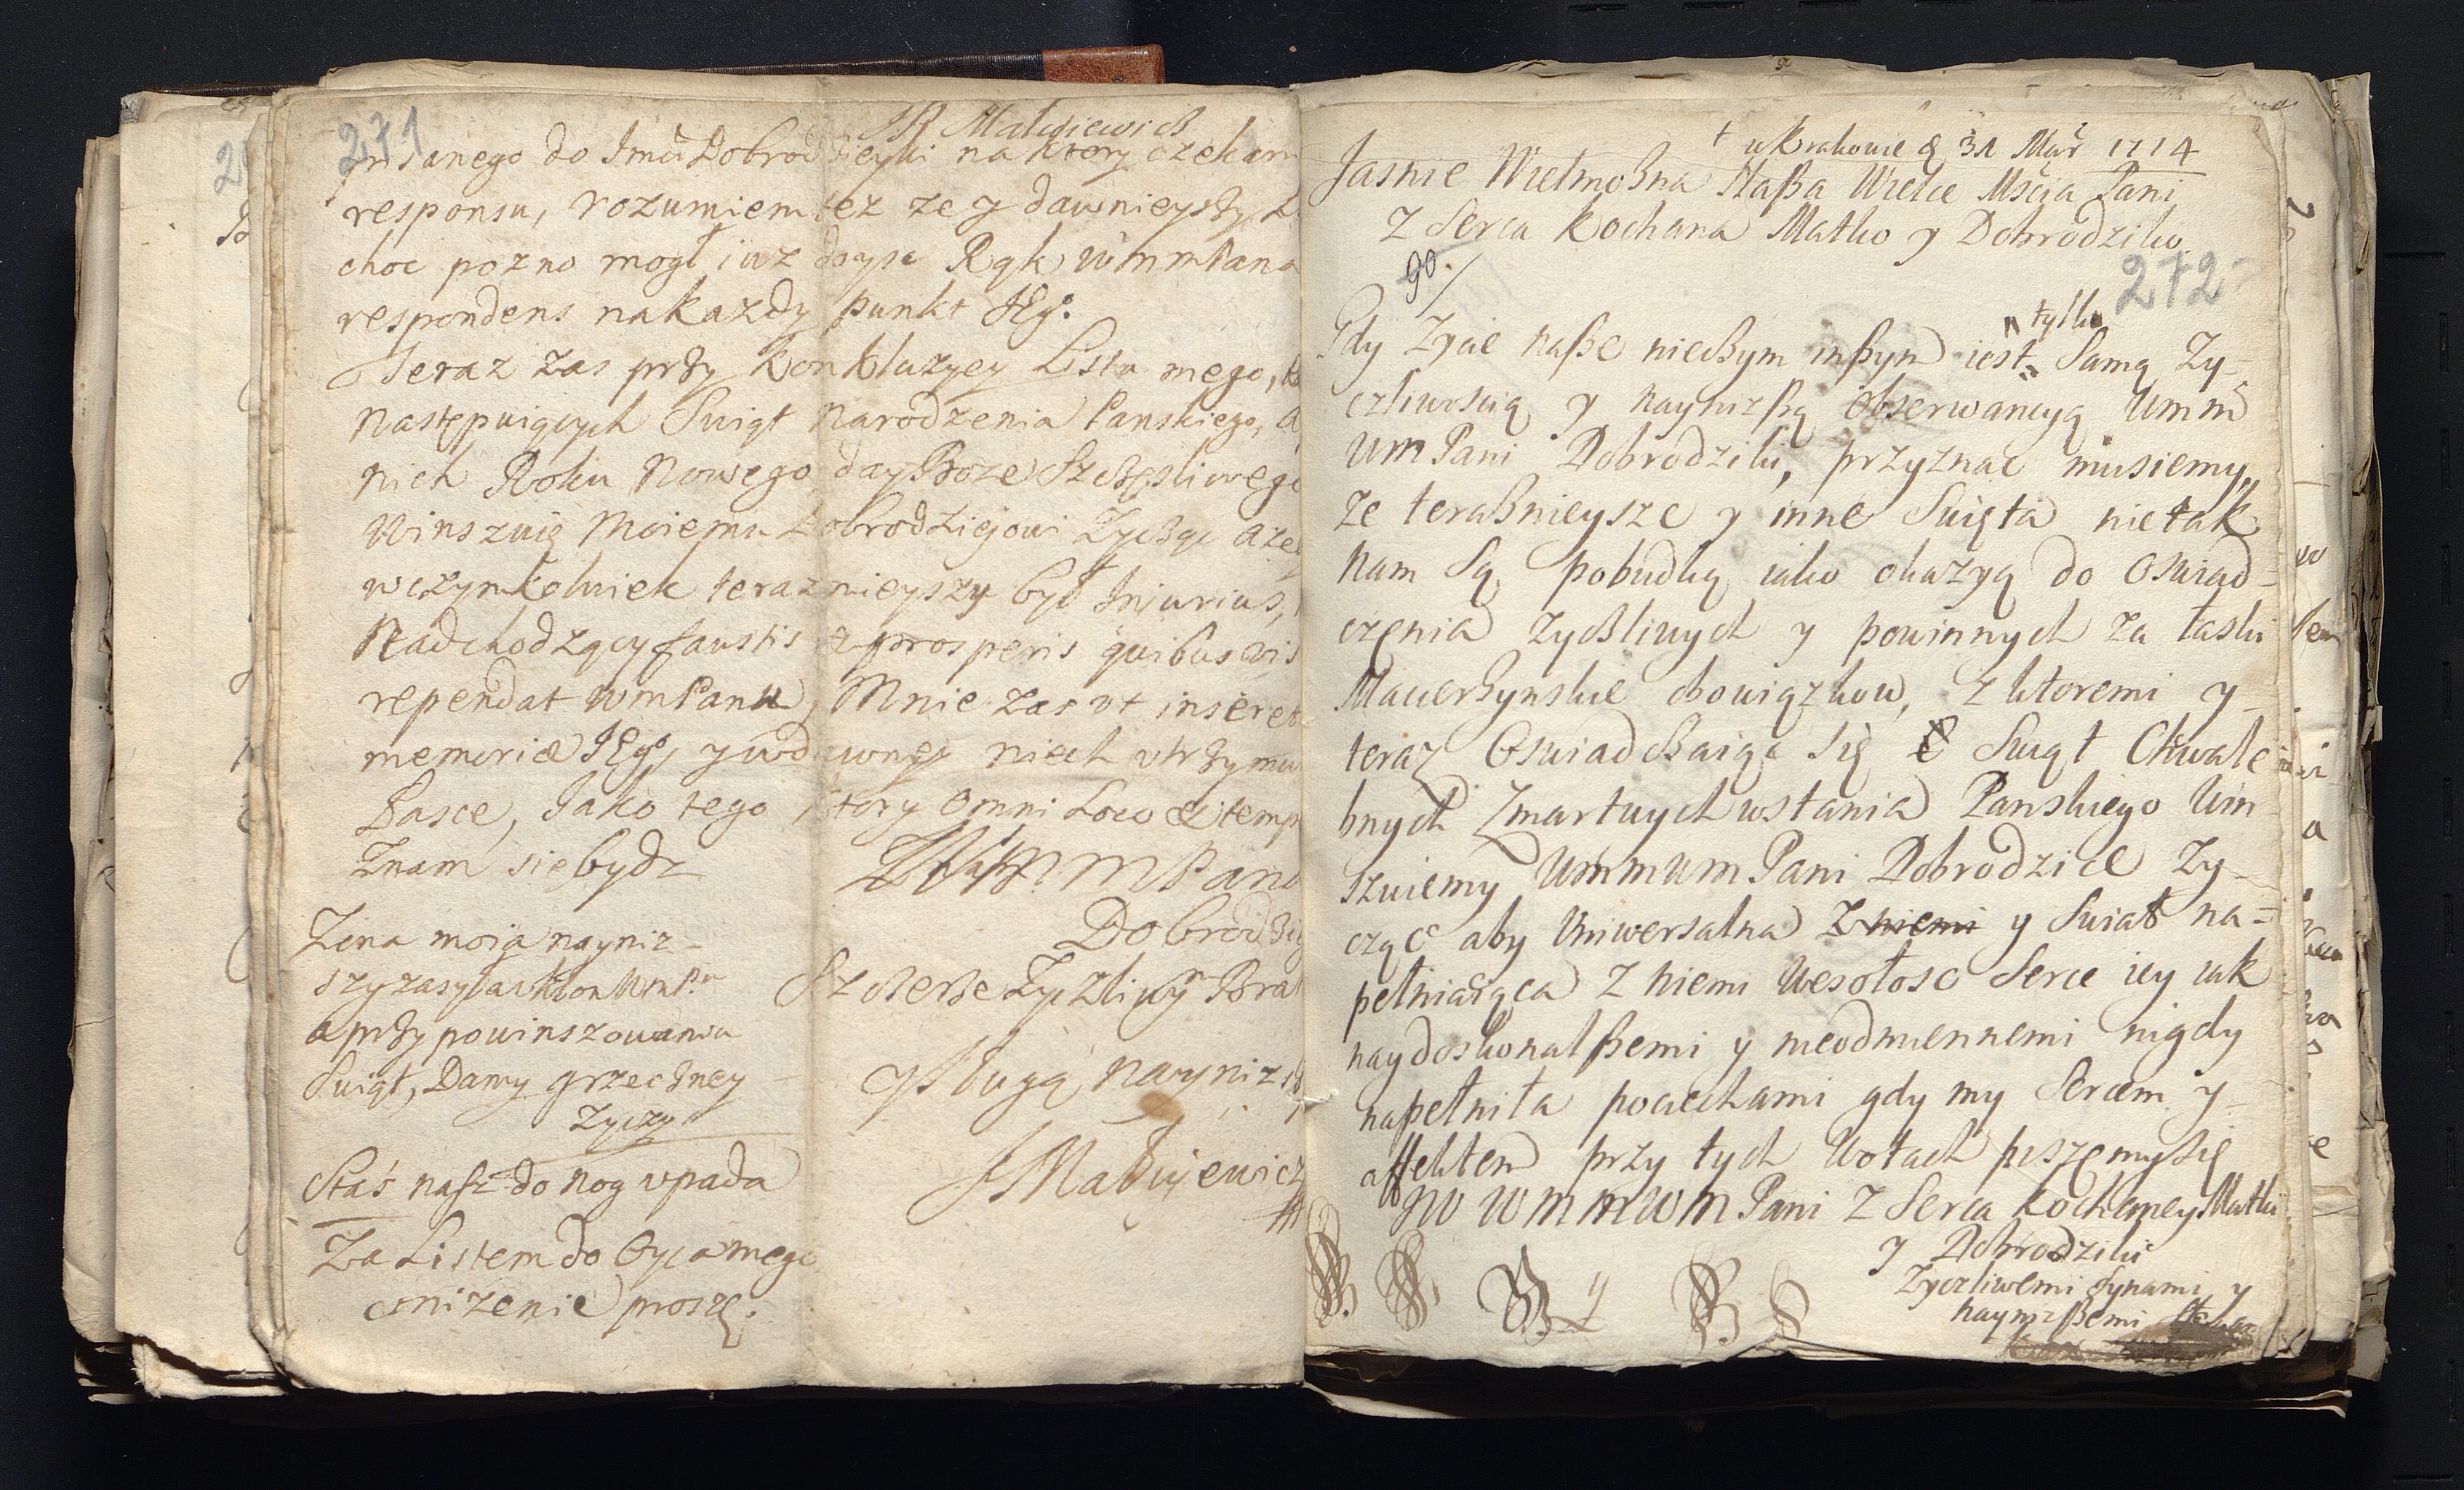 271
JR Matusiewicz
pisanego do Jmci Dobrodzieyki na ktory czekam
responsu, rozumiem tez ze y dawnieyszy
choc pozno mogł iuz doysc Rąk WmmPana
respondens na kazdy punkt JEgo.
Teraz zas przy konkluzyey Listu mego,
Następuiących Swiąt Narodzenia Panskiego, a
nich Roku Nowego day Boze Szczęsliwego
Winszuię Moiemu Dobrodziejowi Zycząc aze
w czymkolwiek teraznieyszy był Injurius,
Nadchodzący faustis & prosperis quibusvis
rependat WmPanu, Mnie zas ut inseret
memoriæ JEgo, y wdawney niech utrzymu
Łasce, Jako tego ktory omni Loco & temp
Znam się bydz
WMM Pana
Dobrodzie
Szczerze Zyczliwy Brat
y Sługą nayniz
JMatujewicz
Zona moja nayniz-
szy zasyła ukłon WmPu
a przy powinszowaniu
Swiąt, Damy grzeczney
zyczy
Staś nasz do nog upada
Za Listem do Oyca mego
oniżenie proszę.
w Krakowie d 31 Mar 1714
Jasnie Wielmożna Naßa Wielce Mścia Pani
Z Serca Kochana Matko y Dobrodziko
90.
272
tylko
Gdy Zycie naße nieczym inßym iest Samą Zy-
czliwoscią y nayniżßą obserwancyą Wmm
Wm Pani Dobrodziki, przyznac musiemy,
ze teraßnieysze y inne Swięta nie tak
Nam Są pobudką iako okazyą do Oswiad-
czenia zyczliwych y powinnych za łaski
Macierzynskie obowiązkow, z ktoremi y
teraz Oswiadczaiąc się Swiąt Chwale
bnych Zmartwychwstania Panskiego Win
szuiemy WmmWm Pani Dobrodzice Zy-
cząc aby Uniwersalna Z niemi y Swiat na=
pełniaiąca Z niemi Wesołosc Serce iey iak
naydoskonalßemi y nieodmiennemi nigdy
napełniła pociechami gdy my Sercem y
affektem przy tych Wotach piszemy się
JW WmmWm Pani Z Serca kochaney Matki
y Dobrodziki
Zyczliwemi Synami y
nayniżßemi